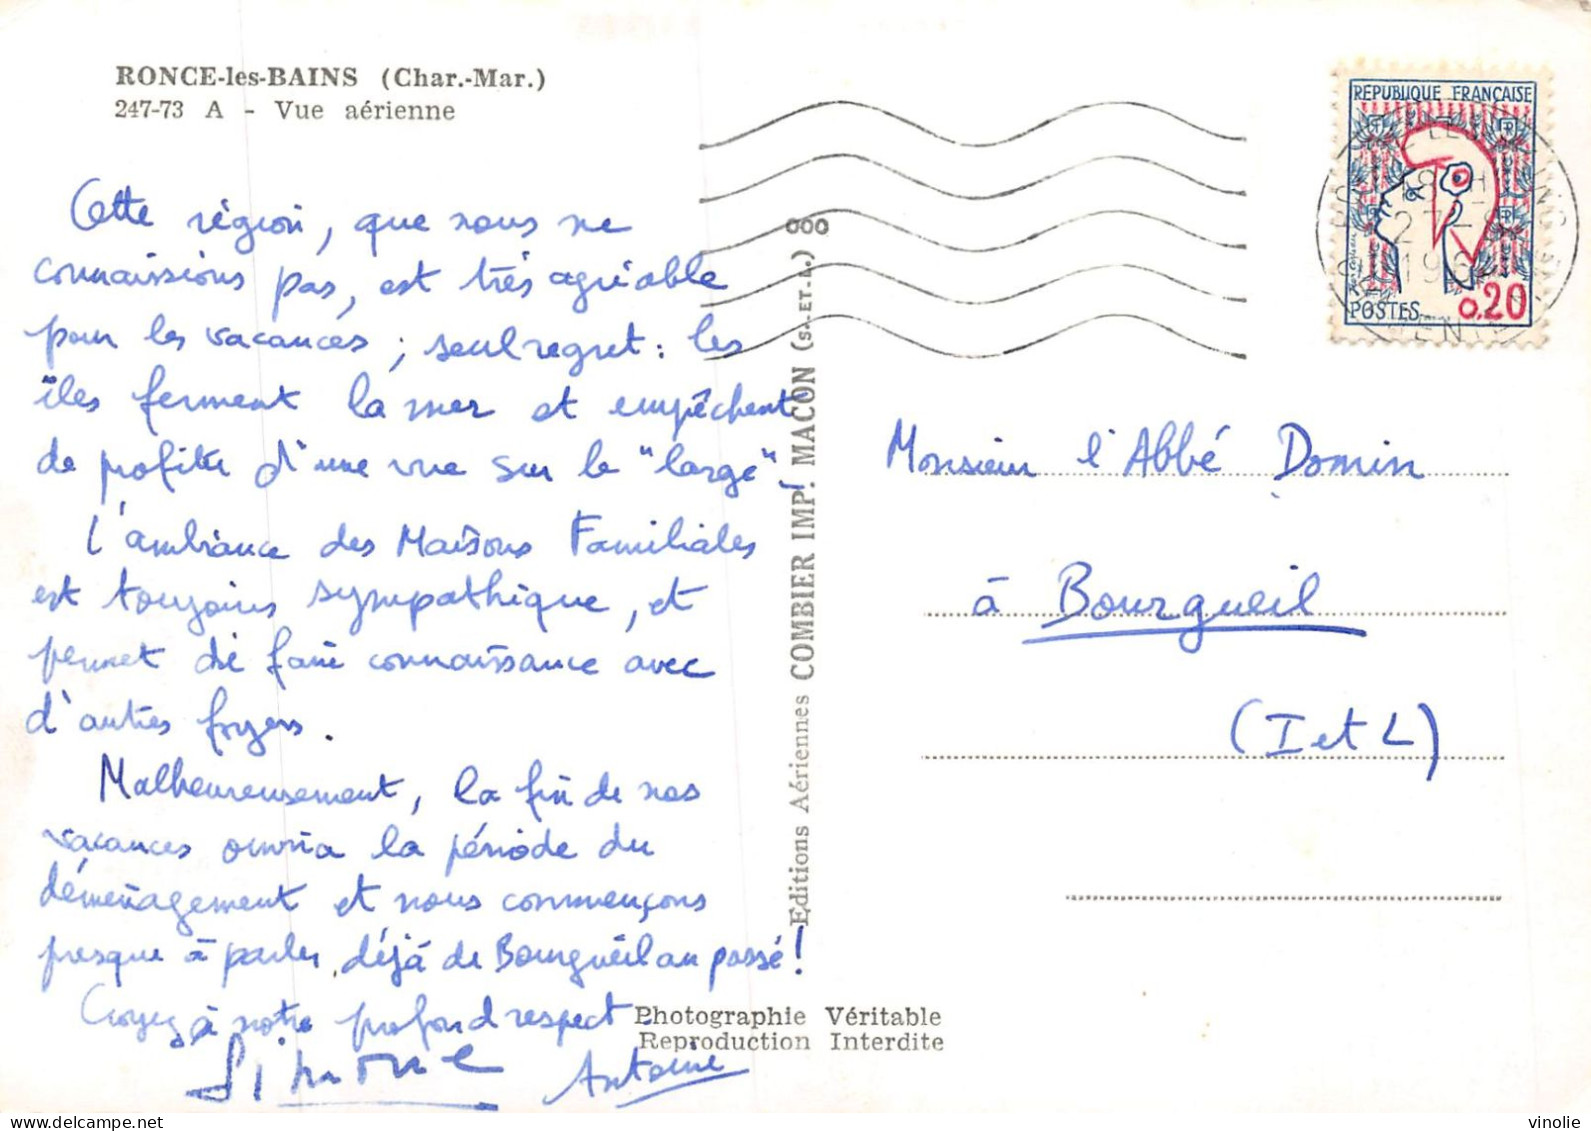 RONCE-les-BAINS (Char.-Mar.)
247-73 A - Vue aérienne
Cette région, que nous ne
connaissions pas, est très agréable
pour les vacances ; seul regret : les
îles ferment la mer et empêchent
de profiter d'une vue sur le "large".
L'ambiance des Maisons Familiales
est toujours sympathique, et
permet de faire connaissance avec
d'autres foyers.
Malheureusement, la fin de nos
vacances ouvrira la période du
déménagement et nous commençons
presque à parler déjà de Bourgueil au passé !
Croyez à notre profond respect.
Simone Antoine
Editions Aériennes COMBIER IMP. MACON (S.-ET-L.) 000
Photographie Véritable
Reproduction Interdite
REPUBLIQUE FRANÇAISE
POSTES 0,20
18 H
27-8
196
Monsieur l'Abbé Domin
à Bourgueil
(I et L)
vinolie